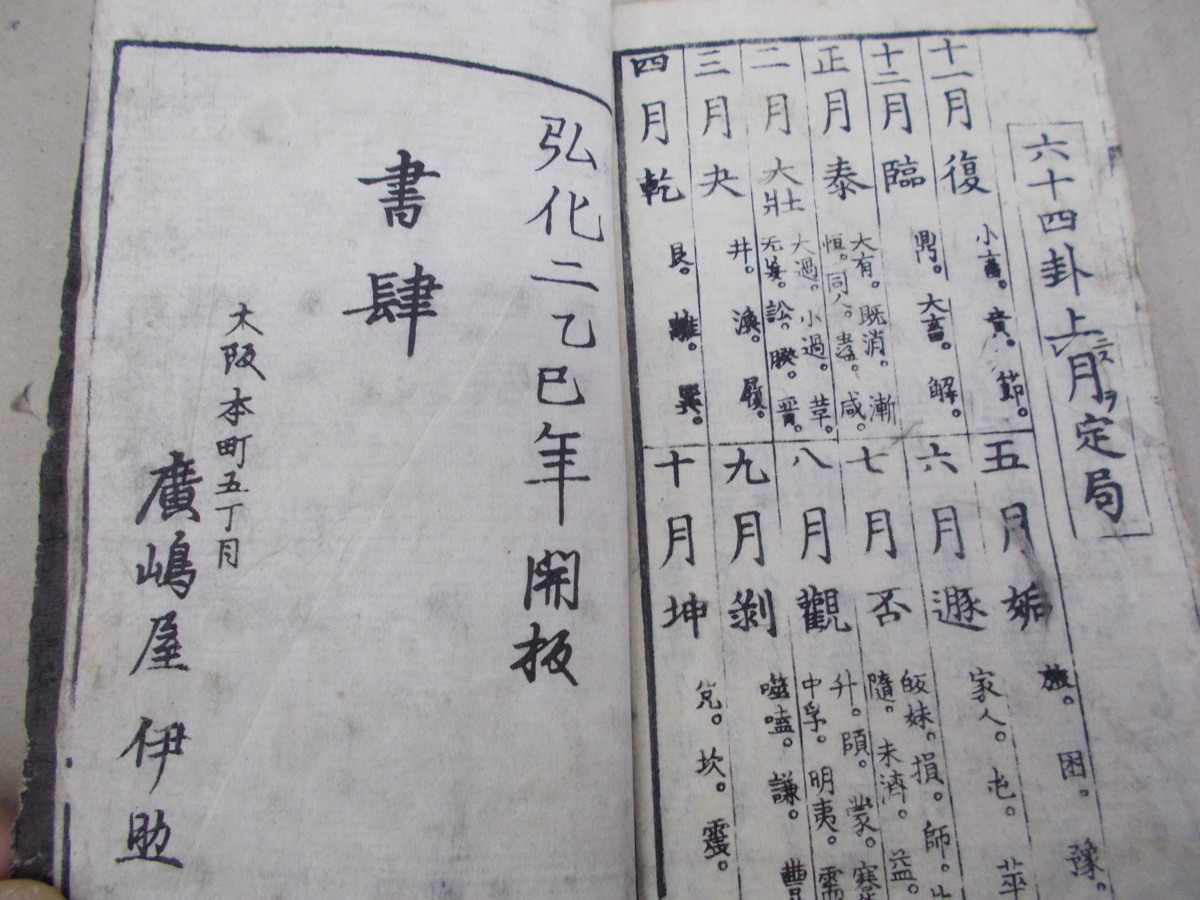 六十四卦上月定局
十一月復 小畜。賁。節。
十二月臨 鼎。大畜。解。
正月泰 大有。既消。漸
恒。同人。蠱。咸。
二月大壯 大過。小過。革。
无妄。訟。睽。晉。
三月夬 井。渙。履。
四月乾 艮。離。巽。
五月姤 旅。困。豫。
六月遯 家人。屯。萃
七月否 皈妹。損。師。比
隨。未濟。益。
八月觀 升。頤。蒙。蹇
中孚。明夷。需
九月剝 噬嗑。謙。豊
十月坤 兌。坎。震。
弘化二乙巳年開板
書肆
大阪本町五丁目
廣嶋屋伊助